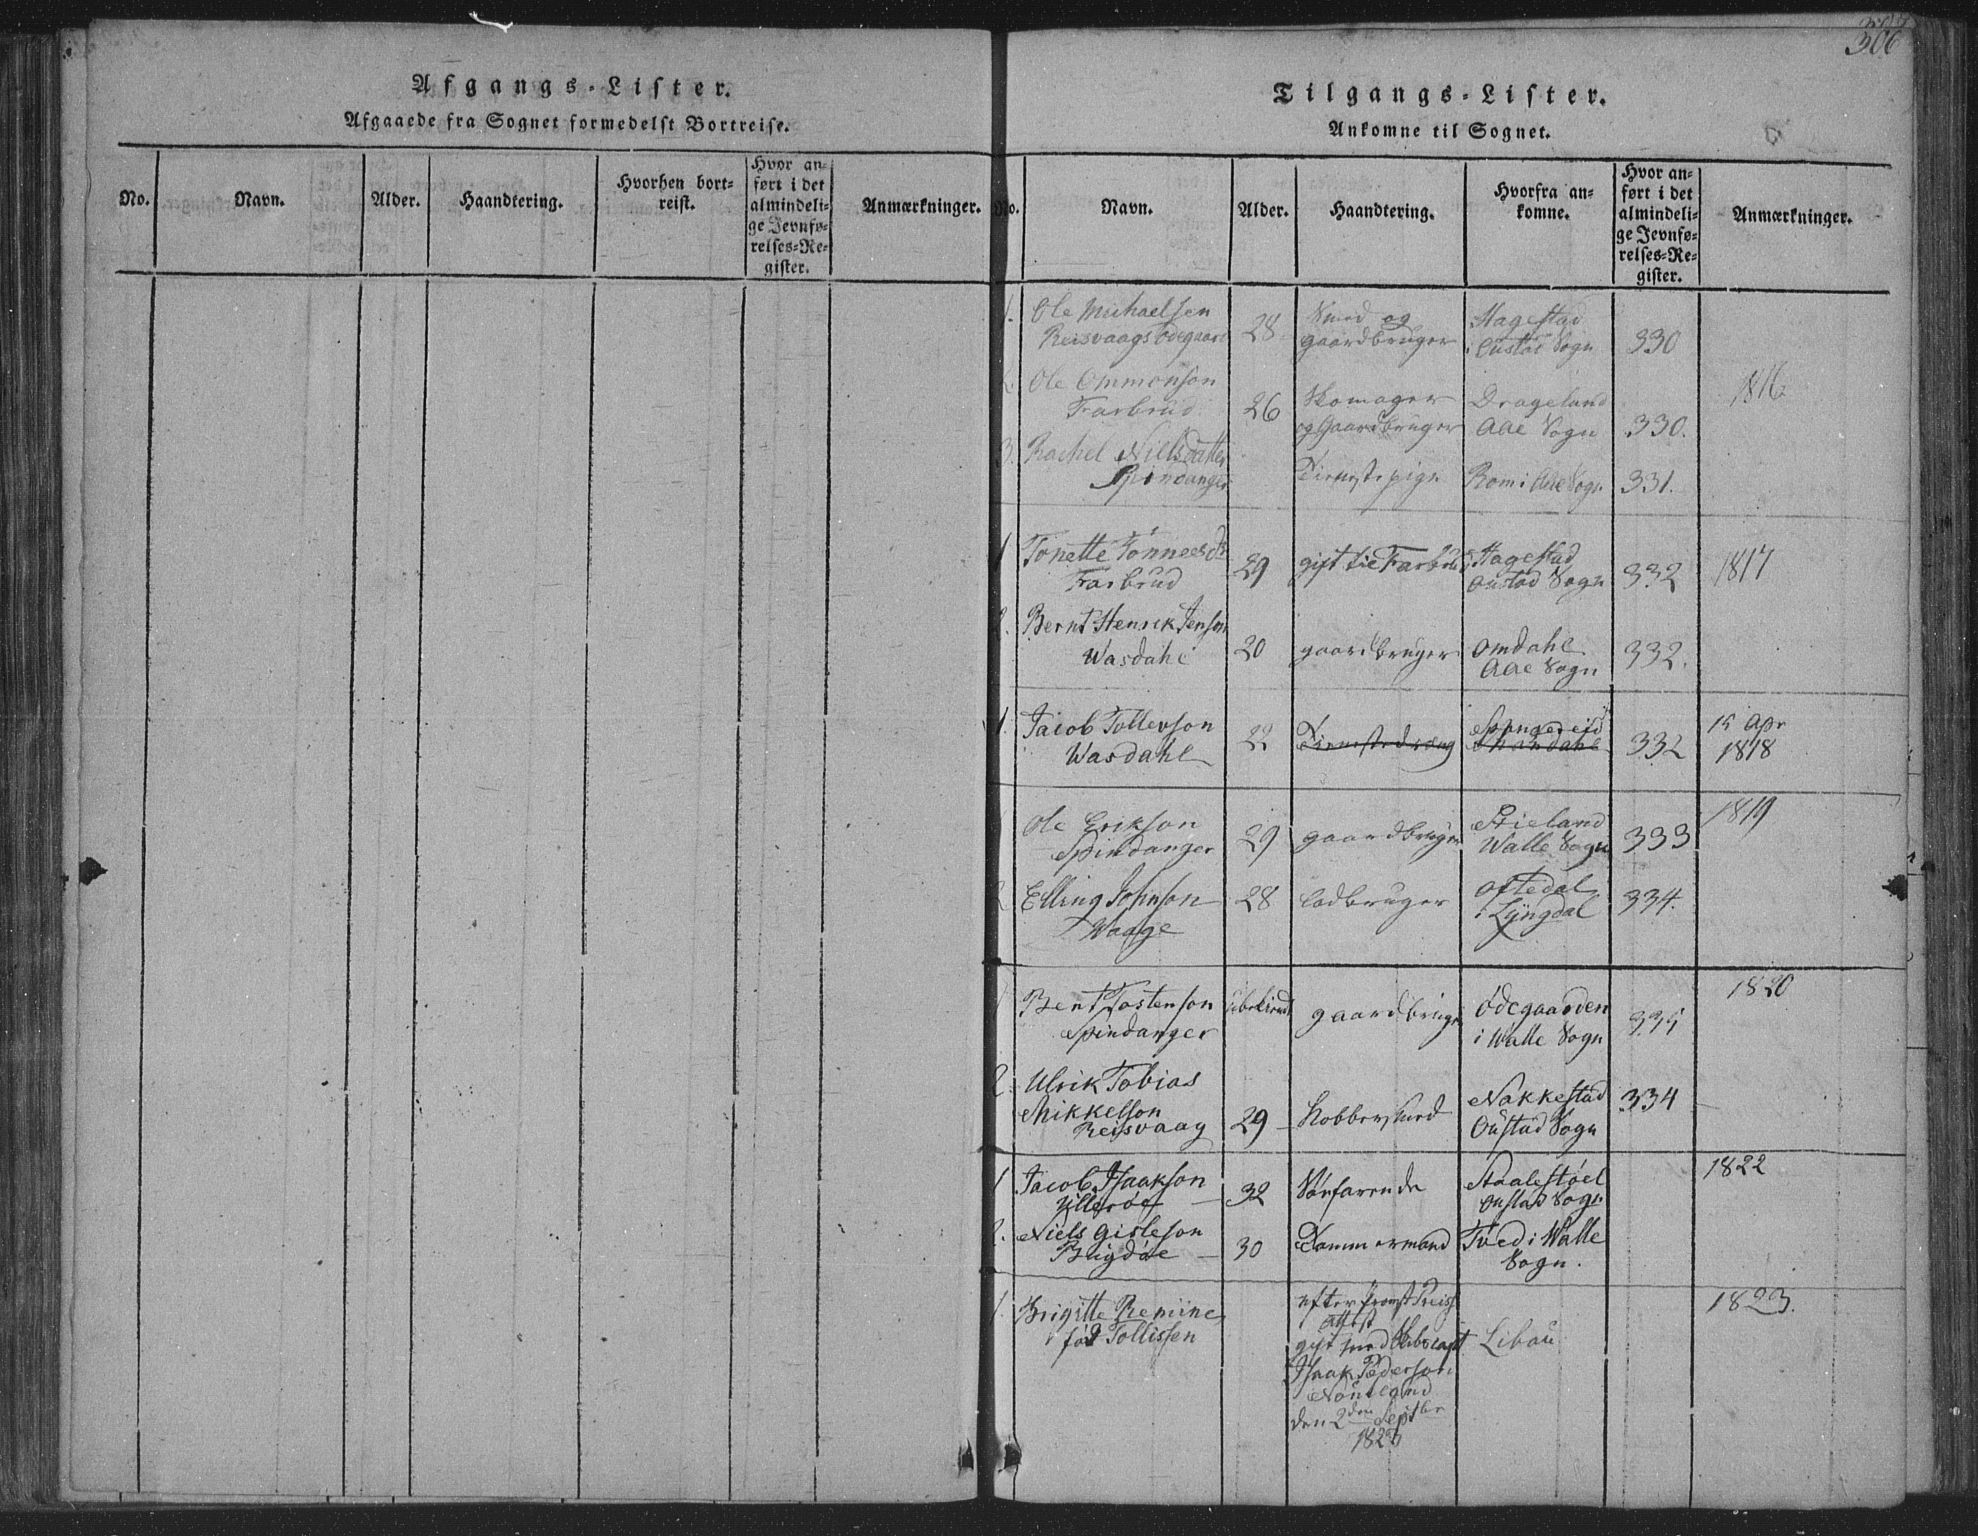 306
Afgangs-Lister.
Afgaaede fra Sognet formedelst Bortreise.
No.
Navn.
Alder.
Haandtering.
Hvorhen bort=
reist.
Hvor an=
ført i det
almindeli=
ge Jevnfø=
relses=Re=
gister.
Anmærkninger.
Tilgangs-Lister.
Ankomne til Sognet.
No.
Navn.
Alder.
Haandtering.
Hvorfra an=
komne.
Hvor an=
ført i det
almindeli=
ge Jevnfø=
relses=Re=
gister.
Anmærkninger.
1. Ole Michaelsen
Reisvaags Ødegaard 28 Smed og
gaardbruger Hagestad
i Oustad Sogn 330
2. Ole Ommonson
Farbrud 26 Skomager
og Gaardbruger Drageland
Aae Sogn 330. 1816
3. Rachel Nielsdatter
Spindanger Tienestepige Rom i Aae Sogn 331.
1 Tonette Tønnesdr
Farbrud 29 gift til Farbrud Hagestad
Oustad Sogn 332 1817
2. Bernt Henrik Jenson
Wasdahl 20 gaardbruger Omdahl
Aae Sogn 332.
1. Jacob Tollevson
Wasdahl 22 Tienestedreng Spangereid
332 15 Apr
1818
Ole Erikson
Spindanger 29 gaardbruger Stieland
Walle Sogn 333 1819
2 Elling Johnson
Waage 28 Lodbruger Oftedal
i Lyngdal 334.
1 Bent Tostenson
Spindanger ubekiendt gaardbruger Ødegaarden
i Walle Sogn 335 1820
2. Ulrik Tobias
Mikkelson
Reisvaag 29 Kobbersmed Nakkestad
Oustad Sogn 334
1 Jacob Isaakson
Ullerøe 32 Søefarende Staalestøel
Oustad Sogn 1822
2. Niels Gisleson
Bugdøe 30 Tømmermand Tved i Walle
Sogn.
1. Brigitte Remiine
fød Tollissen efter
Attest
gift med Skibscapt
Isaak Pederson
den 2den Septbr
1823 Libau 1823.